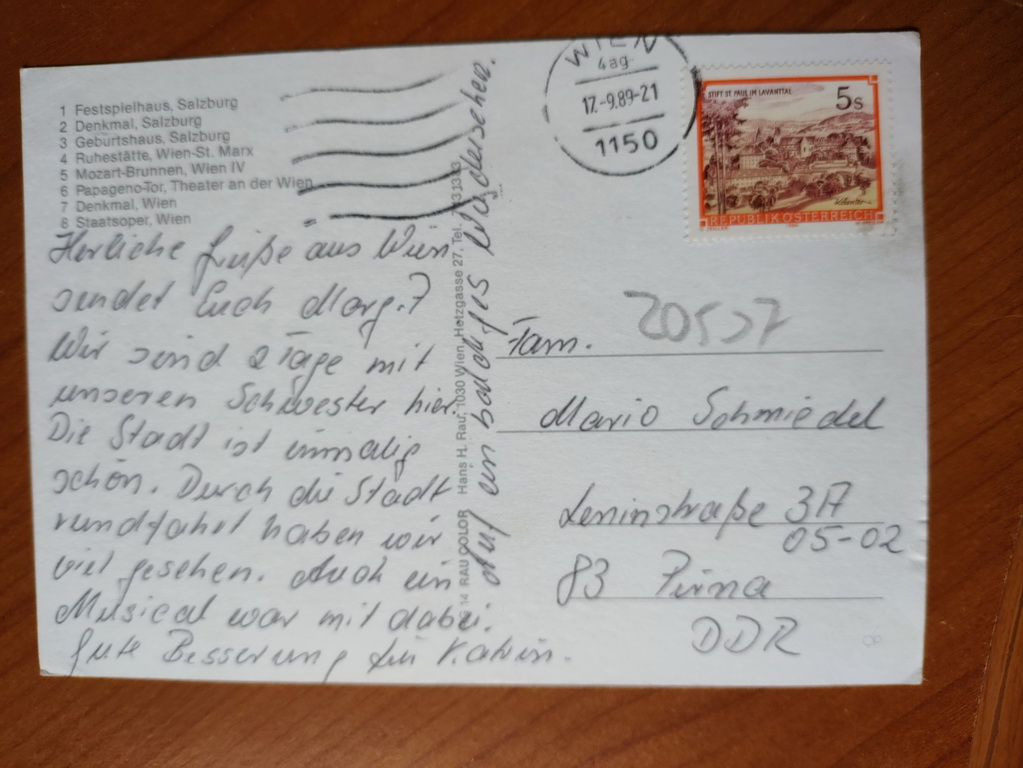 1 Festspielhaus, Salzburg
2 Denkmal, Salzburg
3 Geburtshaus, Salzburg
4 Ruhestätte, Wien-St. Marx
5 Mozart-Brunnen, Wien IV
6 Papageno-Tor, Theater an der Wien
7 Denkmal, Wien
8 Staatsoper, Wien
Herliche Grüße aus Wien
sendet Euch Marg.?
Wir sind 2 Tage mit
unseren Schwester hier.
Die Stadt ist einmalig
schön. Durch die Stadt
rundfahrt haben wir
viel gesehen. Auch ein
Musical war mit dabei.
Gute Besserung für Katrin.
Auf ein baldiges Wiedersehen.
14 RAU COLOR Hans H. Rau, 1030 Wien, Hetzgasse 27, Tel. 713 13 43
WIEN
4ag
17.-9.89-21
1150
STIFT ST. PAUL IM LAVANTTAL
5s
REPUBLIK ÖSTERREICH
20537
Fam.
Mario Schmiedel
Leninstraße 3A
05-02
83 Pirna
DDR